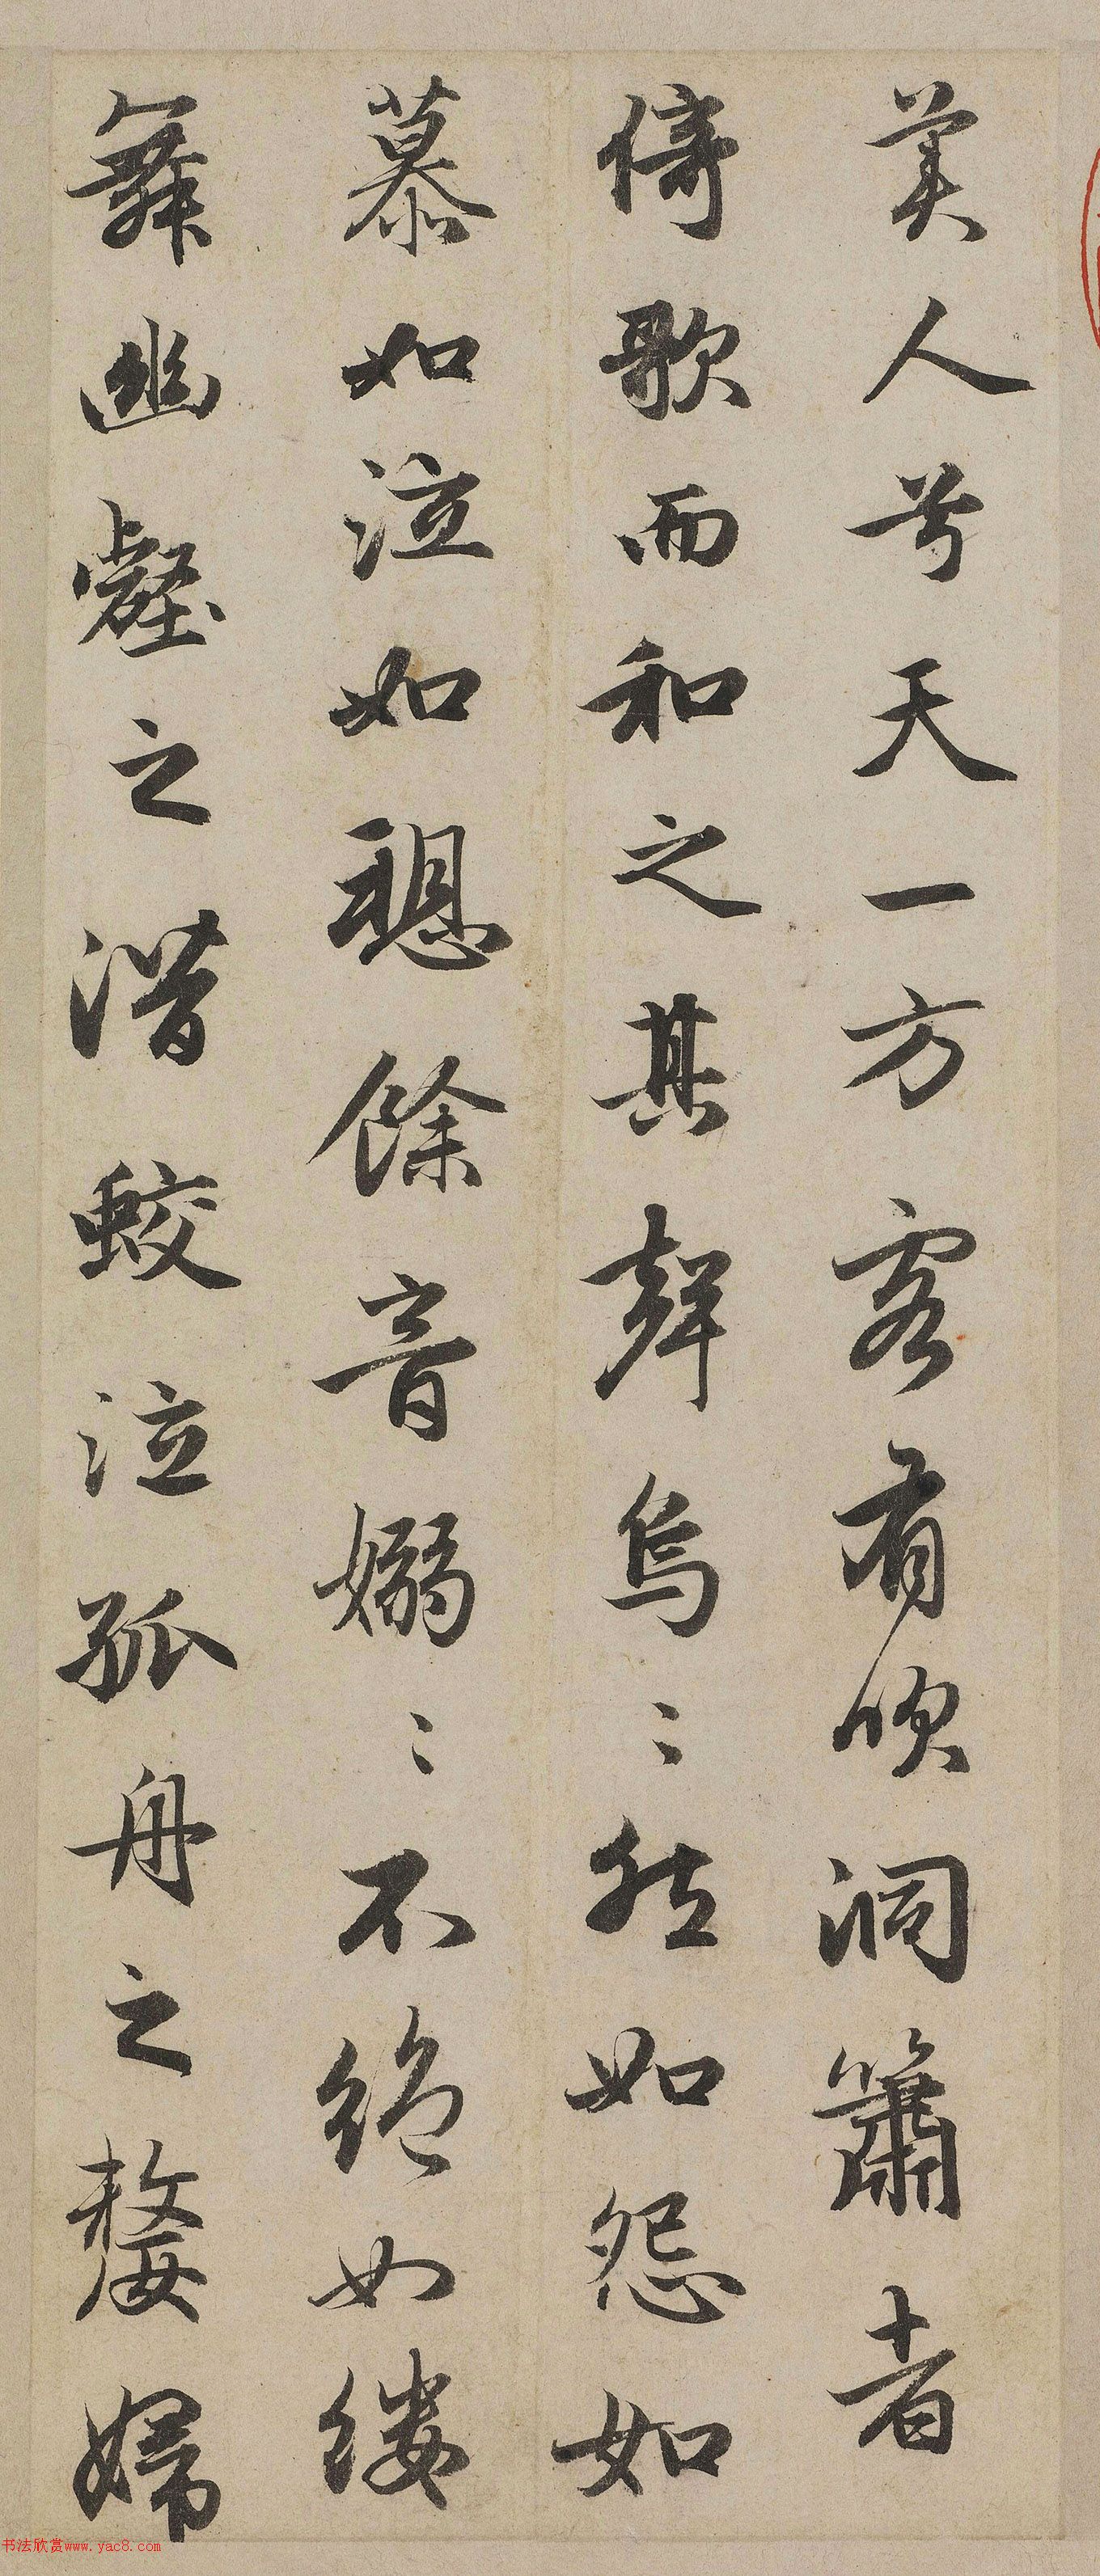 美人兮天一方客有吹洞簫者
倚歌而和之其聲烏〻然如怨如
慕如泣如愬餘音嫋〻不絕如縷
舞幽壑之潛蛟泣孤舟之嫠婦
书法欣赏www.yac8.com